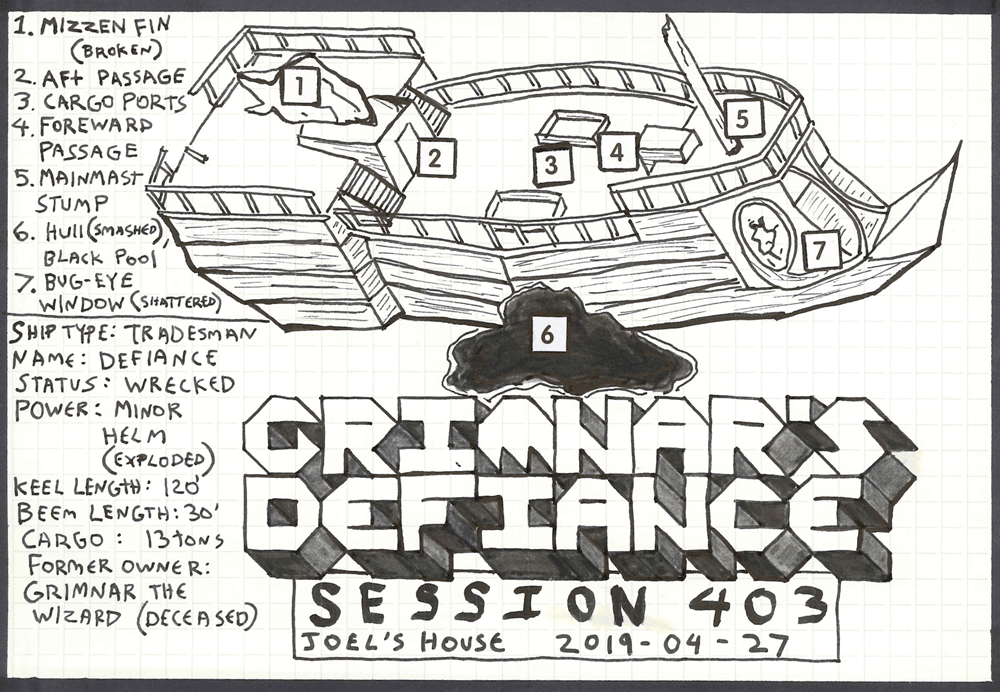 1. MIZZEN FIN
(BROKEN)
2. AFT PASSAGE
3. CARGO PORTS
4. FOREWARD
PASSAGE
5. MAINMAST
STUMP
6. HUll (SMASHED),
BLACK POOl
7. BUG-EYE
WINDOW (SHATTERED)
SHIP TYPE: TRADESMAN
NAME: DEFIANCE
STATUS: WRECKED
POWER: MINOR
HELM
(EXPLODED)
KEEL LENGTH: 120'
BEEM LENGTH: 30'
CARGO: 13 tons
FORMER OWNER:
GRIMNAR THE
WIZARD (DECEASED)
1
2
3
4
5
6
7
GRIMNAR'S
DEFIANCE
SESSION 403
JOEL'S HOUSE 2019-04-27